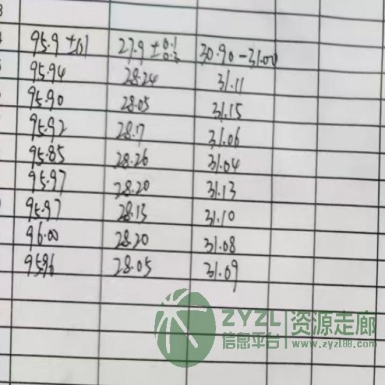 95.9 ±0.1 27.9 ±0.1 0.3 30.90-31.00
95.94 28.24 31.11
95.90 28.05 31.15
95.92 28.17 31.06
95.85 28.26 31.04
95.97 28.20 31.13
95.97 28.13 31.10
96.00 28.20 31.08
95.96 28.05 31.09
ZYZL 资源走廊
信息平台